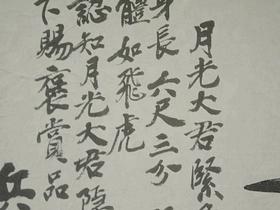 月光大君緊急
身長六尺三分
體如飛虎
認知月光大君隱
下賜褒賞品
兵